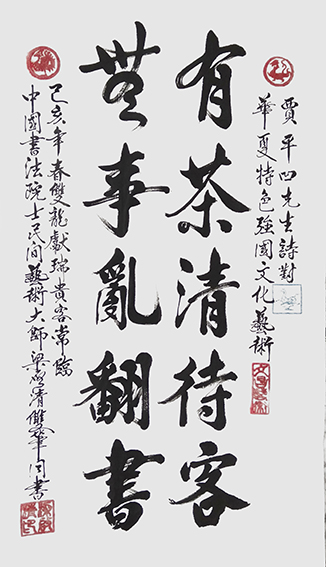 賈平凹先生詩對
華夏特色強國文化藝術
有茶清待客
無事亂翻書
己亥年春雙龍獻瑞貴客常臨
中國書法院士民間藝術大師梁清雙筆同書